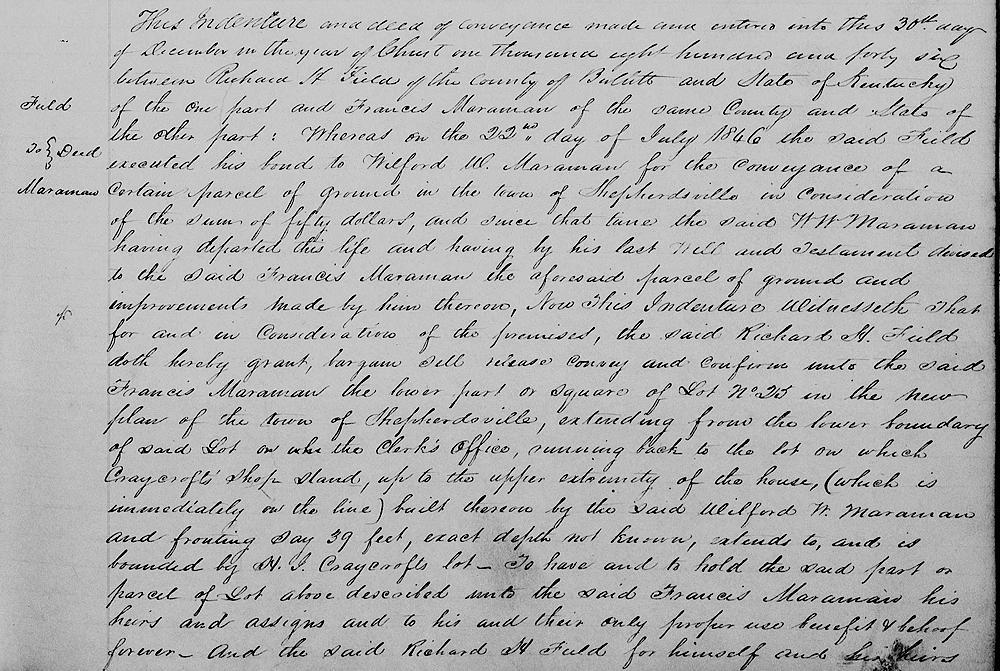 This Indenture and deed of conveyance made and entered into this 30th day
of December in the year of Christ one thousand eight hundred and forty six
between Richard H Field of the County of Bullitt and State of Kentucky
of the one part and Francis Maraman of the same County and State of
the other part: Whereas on the 22nd day of July 1846 the said Field
executed his bond to Wilford W. Maraman for the conveyance of a
certain parcel of ground in the town of Shepherdsville in Consideration
of the sum of fifty dollars, and since that time the said W W Maraman
having departed this life and having by his last Will and Testament devised
to the said Francis Maraman the aforesaid parcel of ground and
improvements made by him thereon, Now This Indenture Witnesseth That
for and in Consideration of the premises, the said Richard H. Field
doth hereby grant, bargain sell release convey and confirm unto the said
Francis Maraman the lower part or square of Lot No 25 in the new
plan of the town of Shepherdsville, extending from the lower boundary
of said Lot on the Clerk's Office, running back to the lot on which
Craycrofts Shop Stand, up to the upper extremity of the house, (which is
immediately on the line) built thereon by the said Wilford W. Maraman
and fronting say 39 feet, exact depth not known, extends to, and is
bounded by H. J. Craycrofts lot - To have and to hold the said part or
parcel of Lot above described unto the said Francis Maraman his
heirs and assigns and to his and their only proper use benefit & behoof
forever - And the said Richard H Field for himself and his heirs
Field
To } Deed
Maraman